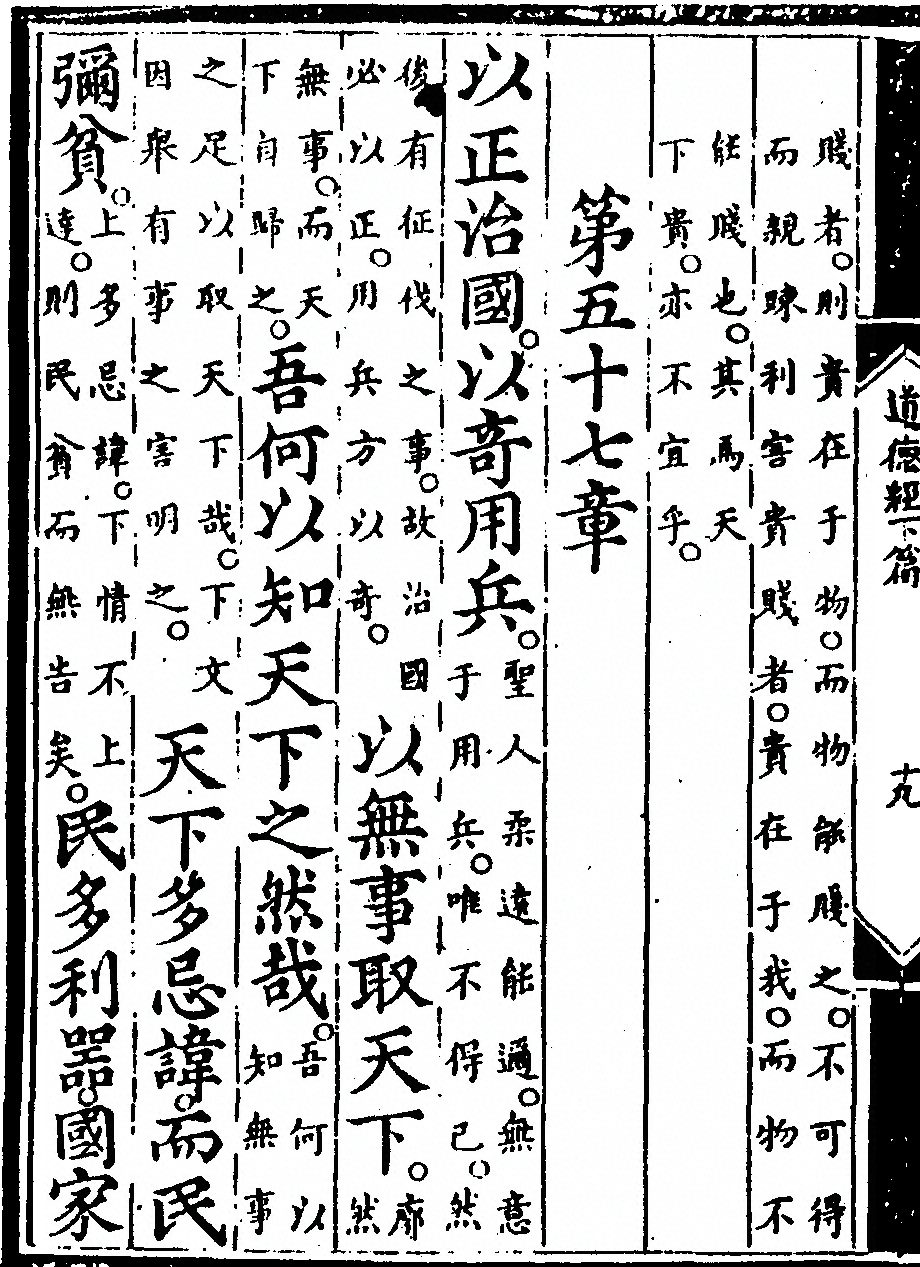 道德經下篇
十九
賤者。則貴在于物。而物能賤之。不可得
而親踈利害貴賤者。貴在于我。而物不
能賤也。其為天
下貴。亦不宜乎。
第五十七章
以正治國。以奇用兵。
聖人柔遠能邇。無意
于用兵。唯不得已。然
後有征伐之事。故治國
必以正。用兵方以奇。
以無事取天下。
廓
然
無事。而天
下自歸之。
吾何以知天下之然哉。
吾何以
知無事
之足以取天下哉。下文
因眾有事之害明之。
天下多忌諱。而民
彌貧。
上多忌諱。下情不上
達。則民貧而無告矣。
民多利器。國家